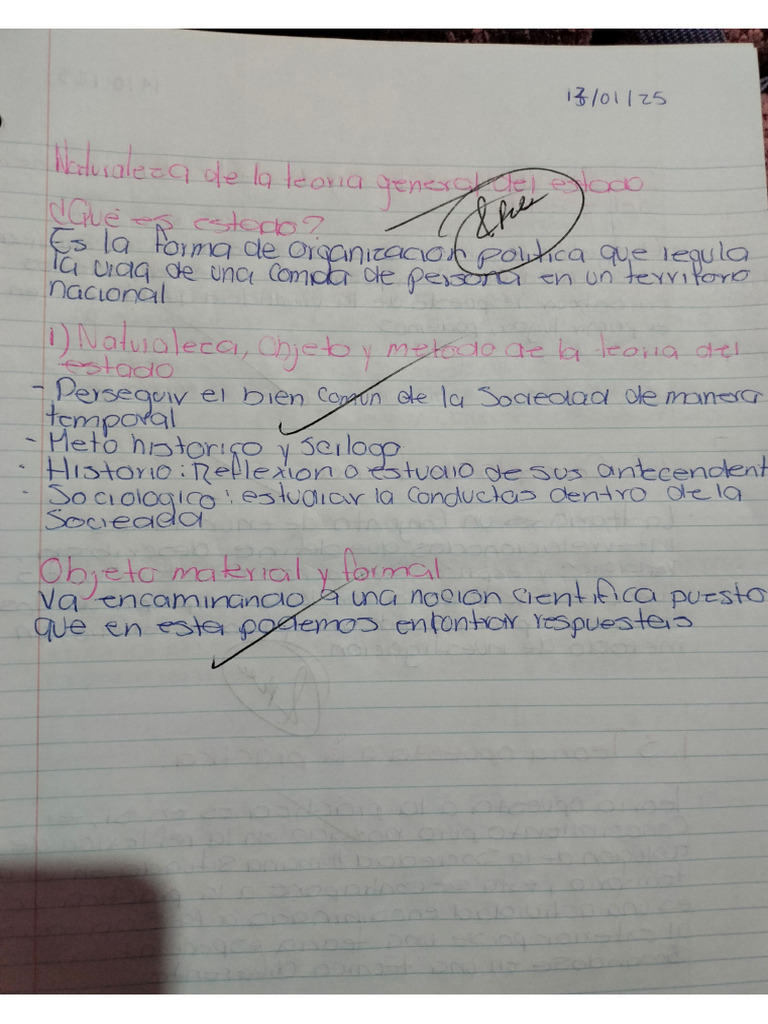 13/01/25
Naturaleza de la teoria general del estado
¿Qué es estado?
Es la forma de organización politica que regula
la vida de una comida de persona en un territoro
nacional
1) Naturaleca, Objeto y metodo de la teoria del
estado
- Perseguir el bien común de la Sociedad de manera
temporal
- Meto historico y scilogo
· Historio: Reflexion o estudio de sus antecendent
· Sociologico: estudiar la conductas dentro de la
Socieada
Objeto material y formal
Va encaminando a una nocion cientifica puesto
que en esta podemos enfontrar respuestas